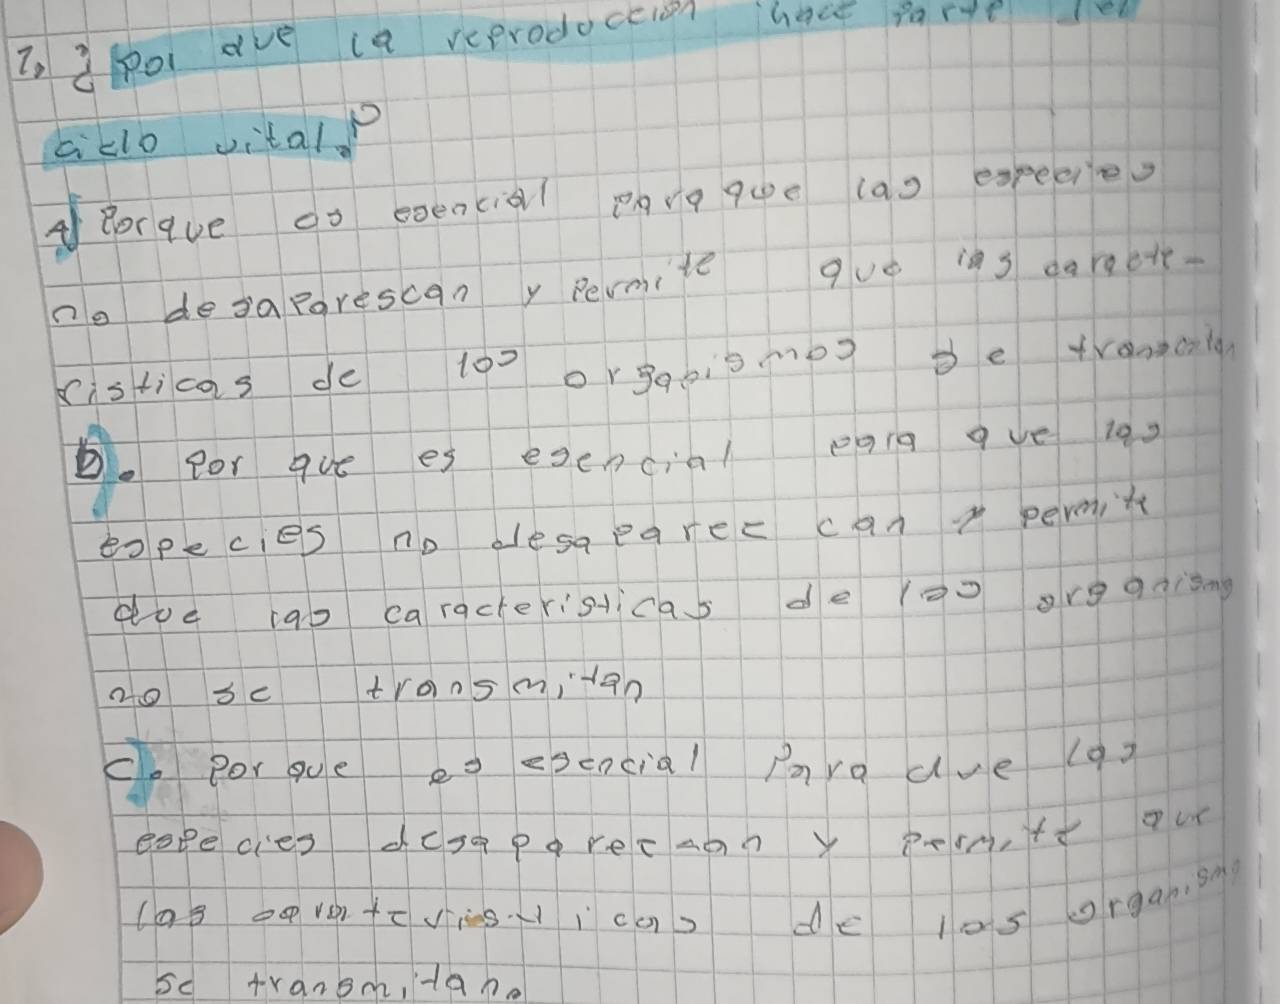 7. ¿Por que la reproduccion hace parte del
ciclo vital?
A) Porque es esencial para que las especies
no desaparescan y permite que las caracte-
risticas de los organismos se
b). Por que es esencial para que las
especies no desaparezcan y permite
que las caracteristicas de los organismo
no se transmitan
c). Por que es esencial Para que las
especies desaparezcan y permite que
las de los organismo
se transmitan.